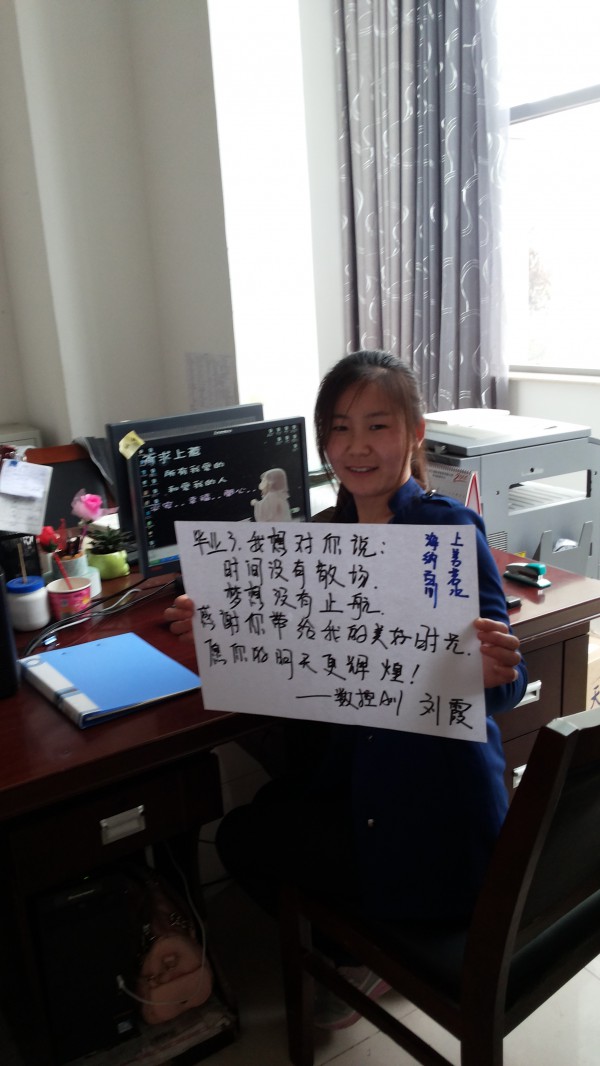 所有我爱的
和爱我的人
毕业了,我想对你说:
时间没有散场.
梦想没有止航.
感谢你带给我的美好时光.
愿你的明天更辉煌!
——数控 刘霞
上善若水
海纳百川